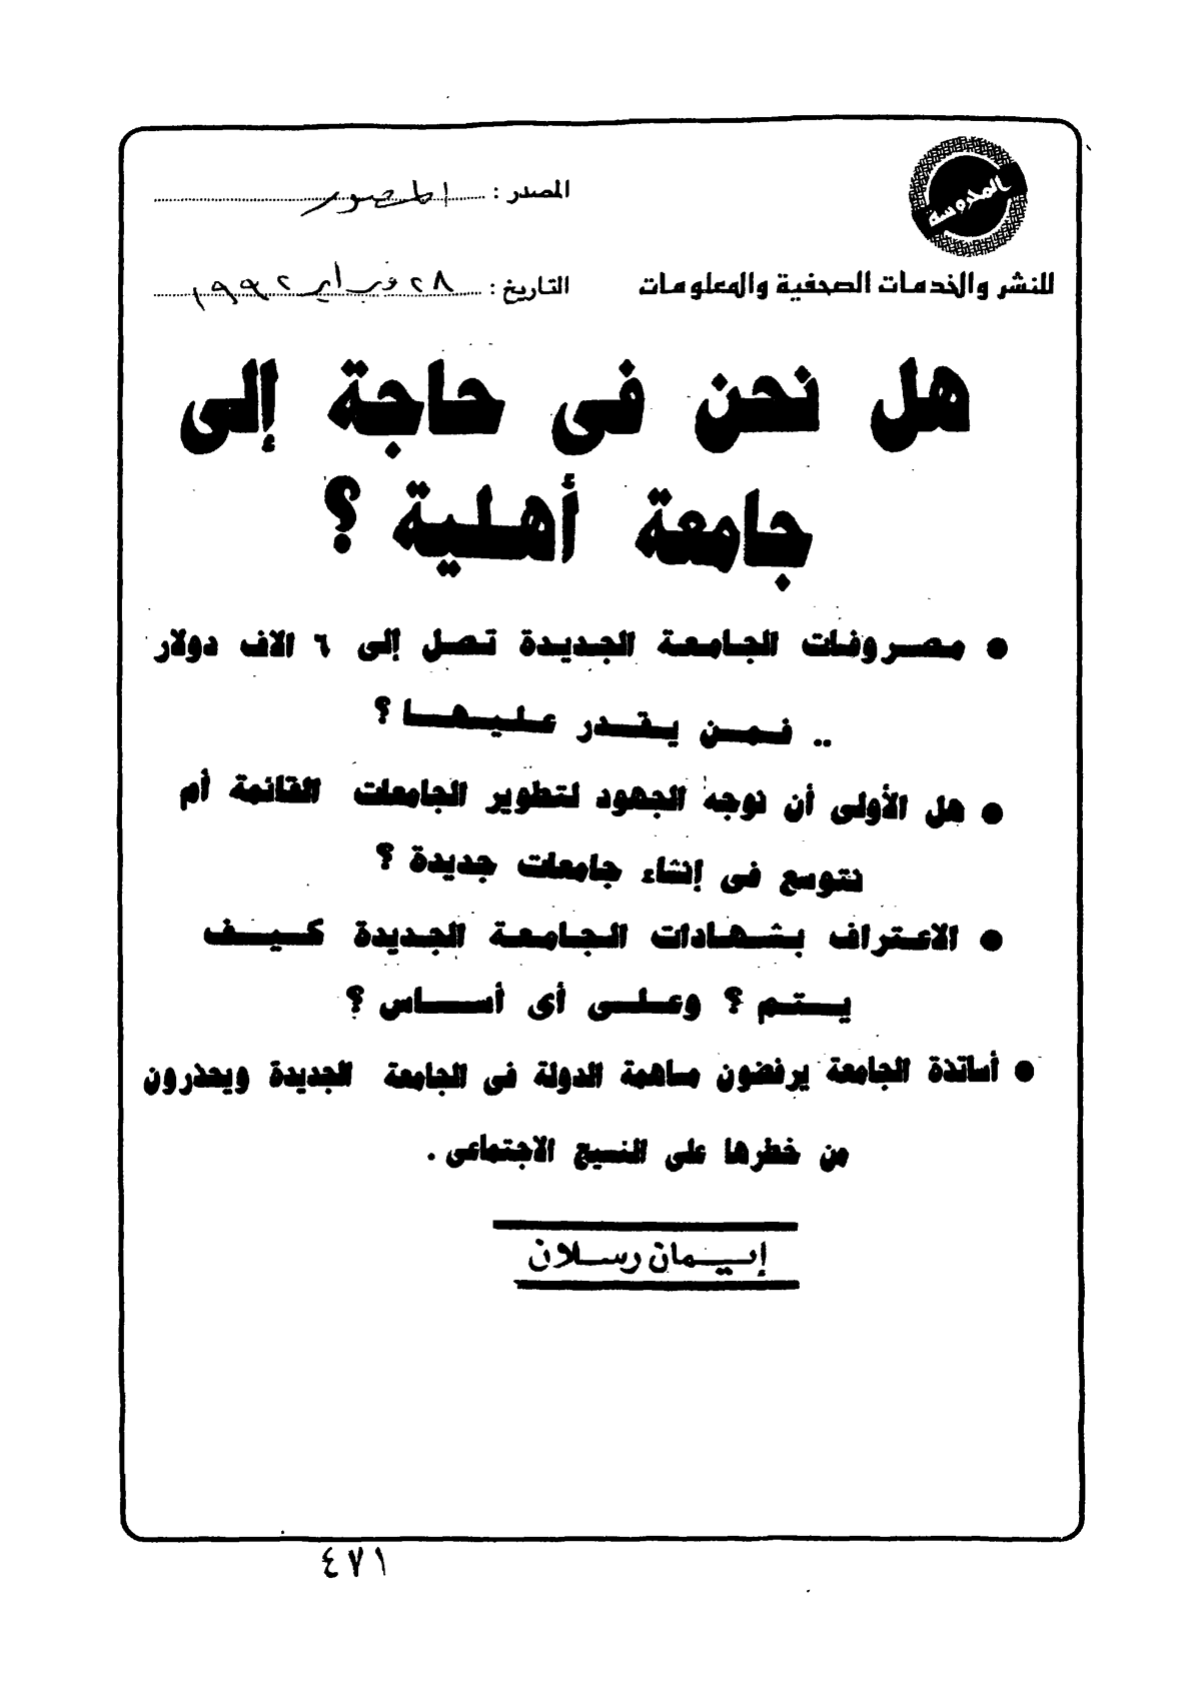 المحروسة
المصدر : المصور
للنشر والخدمات الصحفية والمعلومات
التاريخ : ٢٨ فبراير ١٩٩٢
هل نحن فى حاجة إلى
جامعة أهلية ؟
● مصروفات الجامعة الجديدة تصل إلى ٦ الاف دولار
.. فمن يقدر عليها ؟
● هل الأولى أن نوجه الجهود لتطوير الجامعات القائمة أم
نتوسع فى إنشاء جامعات جديدة ؟
● الاعتراف بشهادات الجامعة الجديدة كيف
يتم ؟ وعلى أى أساس ؟
● أساتذة الجامعة يرفضون مساهمة الدولة فى الجامعة الجديدة ويحذرون
من خطرها على النسيج الاجتماعى .
إيمان رسلان
٤٧١